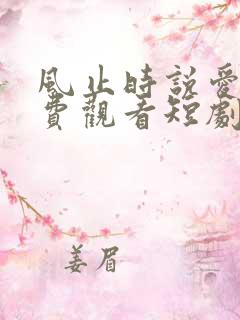 風止時說愛
費觀看短劇
姜眉